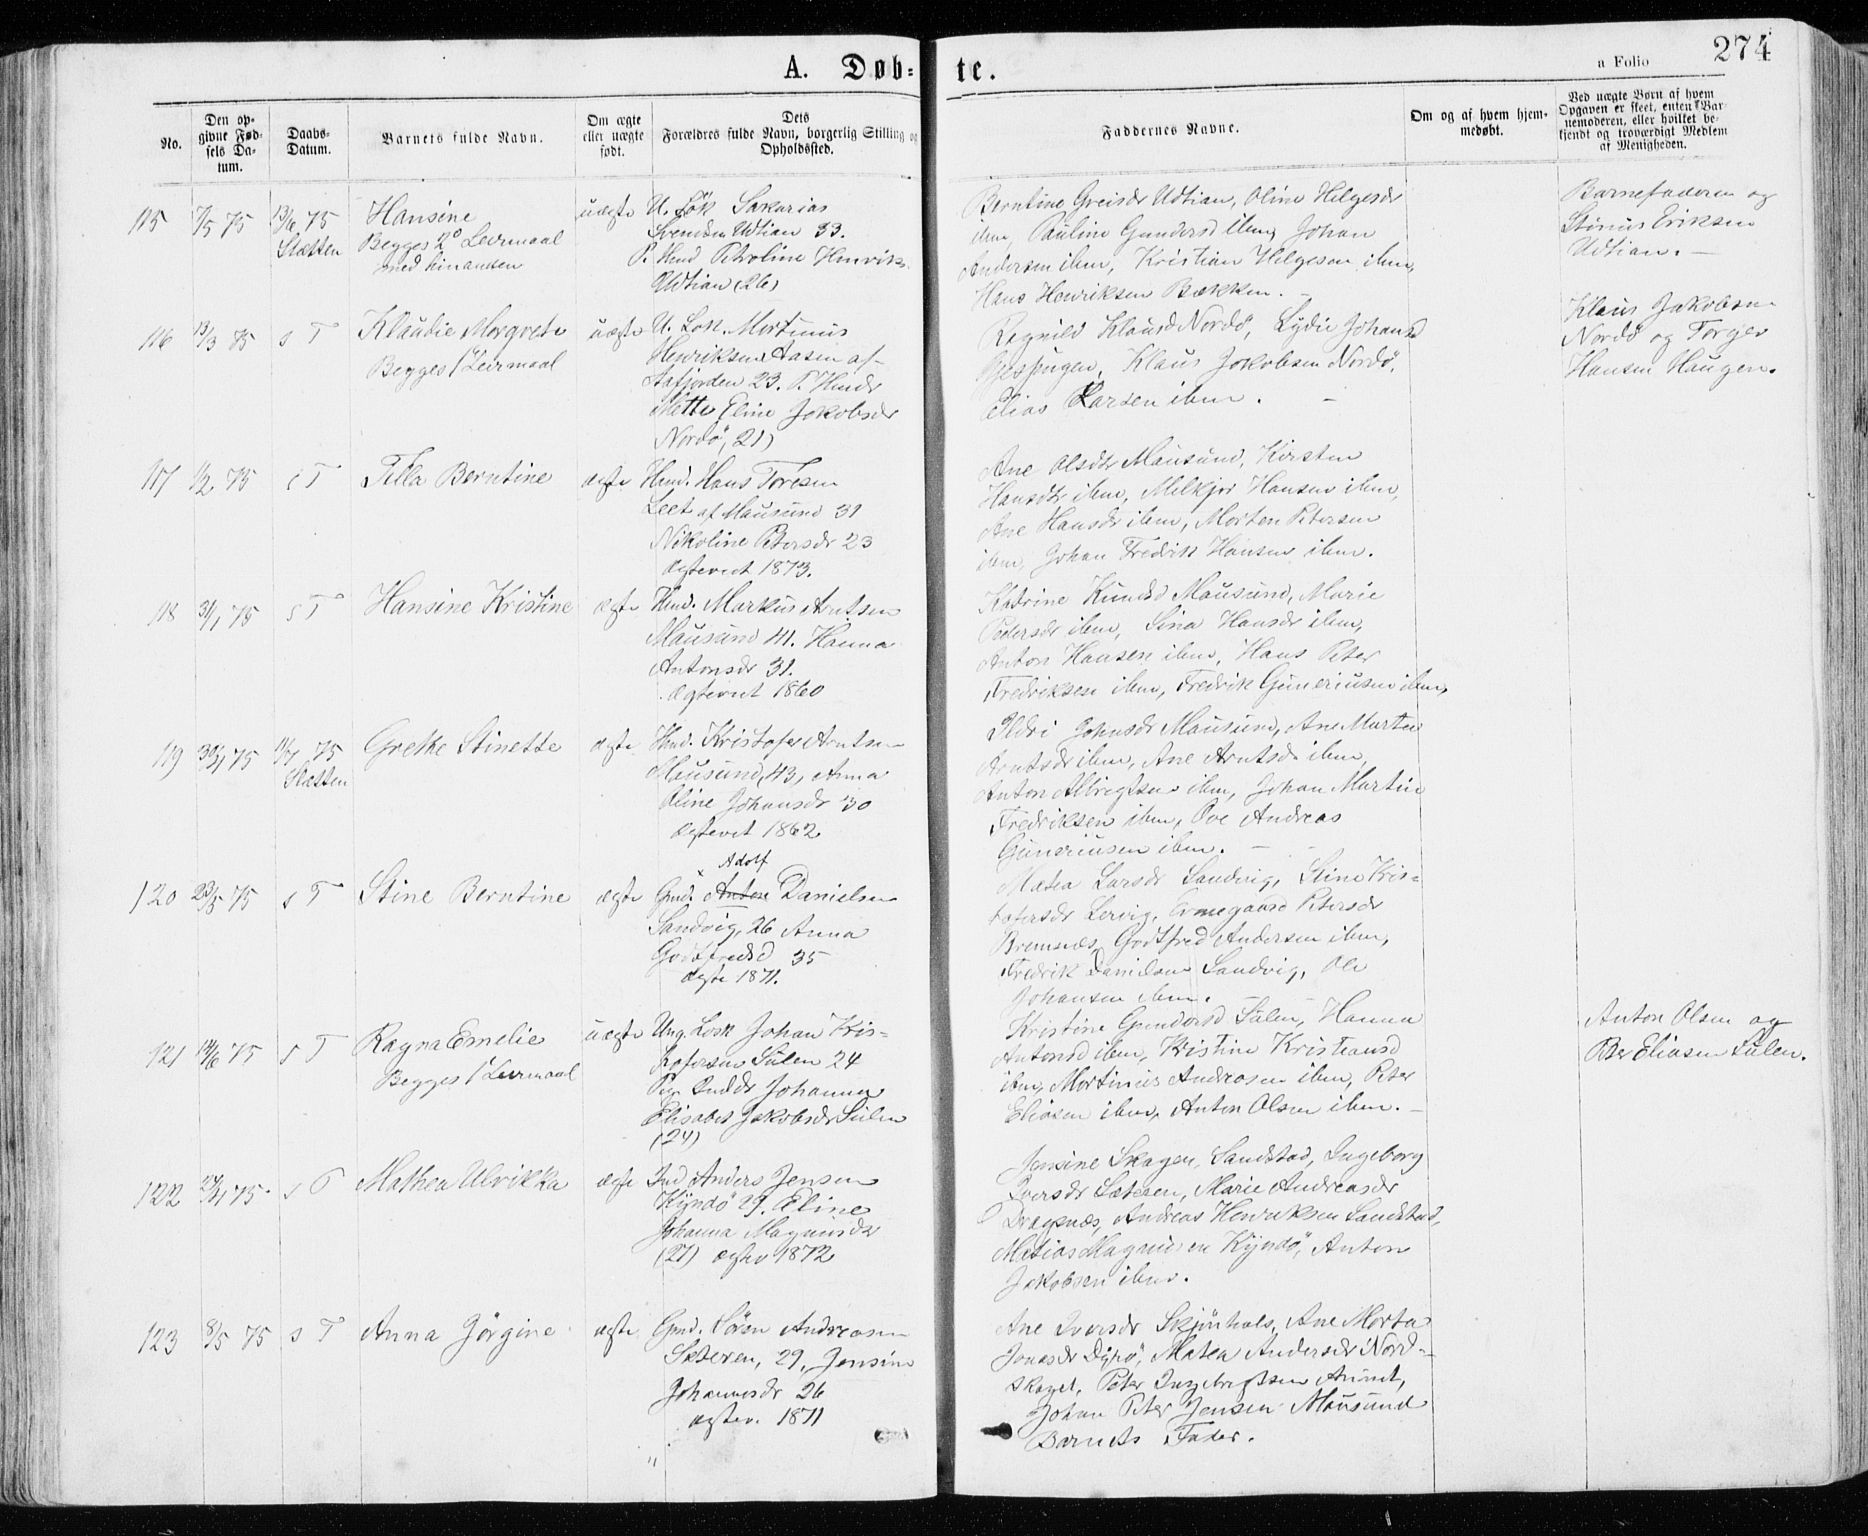 A. Døb-
te.
a Folio
274
No.
Den op-
givne Fød-
sels Da-
tum.
Daabs-
Datum.
Barnets fulde Navn.
Om ægte
eller uægte
født.
Dets
Forældres fulde Navn, borgerlig Stilling og
Opholdssted.
Faddernes Navne.
Om og af hvem hjem-
medøbt.
Ved uægte Børn af hvem
Opgaven er skeet, enten Bar-
nemoderen, eller hvilket be-
kjendt og troværdigt Medlem
af Menigheden.
115
7/5 75
13/6 75
Slætten
Hansine
Begges 2° Leirmaal
med hinanden
uægte
U. Sakarias
Svendsen Udtian 33.
P. Hmd Petroline Henriks
Udtian (26)
Berntine Greisdr Udtian, Oline Helgesdr
ibm, Pauline Gundersd ibm, Johan
Andersen ibm, Kristian Helgesen ibm,
Hans Henriksen Bækken. –
Barnefaderen og
Stinus Eriksen
Udtian. –
116
13/3 75
s T
Klaudie Morgrete
Begges 1 Leirmaal
uægte
U. Losk. Mortinus
Henriksen Aasen af
Aafjorden 23. P. Hmdr
Mette Eline Jakobsdr
Nordö, 21)
Ragnild Klausd Nordö, Lydie Johansd
Klaus Jakobsen Nordö,
Elias Larsen ibm. –
Klaus Jakobsen
Nordö og Torger
Hansen Haugen.
117
1/2 75
s T
Tilla Berntine
ægte
Hmd. Hans Toresen
Leet af Mausund 31
Nikoline Petersdr 23
ægteviet 1873.
Ane Olsdtr Mausund, Kirsten
Hansdtr ibm, Melkjor Hansen ibm,
Ane Hansdr ibm, Morten Petersen
ibm, Johan Fredrik Hansen ibm.
118
31/1 75
s T
Hansine Kristine
ægte
Hmd. Markus Arntsen
Mausund 41. Hanna
Antonsdr 31.
ægteviet 1860
Katrine Knudsd Mausund, Marie
Pedersdr ibm, Sina Hansdr ibm,
Anton Hansen ibm, Hans Peter
Fredriksen ibm, Fredrik Guneriusen ibm,
119
30/1 75
11/7 75
Slætten
Grethe Stinette
ægte
Hmd. Kristofer Arntsen
Mausund, 43, Anna
Oline Johansdr 30
ægteviet 1862
Ildri Johnsdr Mausund, Ane Marta
Arntsdr ibm, Ane Arntsdr ibm,
Anton Albrigtsen ibm, Johan Martin
Fredriksen ibm, Ove Andreas
Guneriusen ibm. –
120
23/5 75
s T
Stine Berntine
ægte
Adolf
Gmd. Anton Danielsen
Sandvig, 26 Anna
Godtfredsd 35
ægte 1871.
Matea Larsdr Sandvig, Stine Kris-
tofersdr Lervig, Ermegaard Petersdr
Bremnes, Godtfred Andersen ibm,
Fredrik Danielsen Sandvig, Ole
Johansen ibm.
121
14/6 75
s T
Ragna Emelie
Begges 1 Leirmaal
uægte
Ung. Losk Johan Kris-
tofersen Sulen 24
Pig. Inddr Johanna
Elisabet Jakobsdr Sulen
(24)
Kristine Gundersd Sulen, Hanna
Antonsd ibm, Kristine Kristiansd
ibm, Mortinius Andreasen ibm, Peter
Eliasen ibm, Anton Olsen ibm. –
Anton Olsen og
Per Eliasen Sulen.
122
27/4 75
s T
Mathea Ulrikka
ægte
Ind Anders Jensen
Kjyndö 29. Eline
Johanna Magnusdr
(27) ægtev 1872
Jensine Skagen, Sandstad, Ingeborg
Iversdr Sæteren, Marie Andreasdr
Dragsnæs, Andreas Henriksen Sandstad,
Matias Magnusen Kjyndö, Anton
Jakobsen ibm.
123
8/5 75
s T
Anna Jörgine
ægte
Gmd. Sören Andreasen
Sæteren, 29, Jensine
Johannesdr 26
ægtev. 1871
Ane Iversdr Skjönhals, Ane Morta
Jonasdr Dyrö, Matea Andersdr Nord-
skaget, Peter Ingebrigtsen
Johan Peter Jensen Mausund
Barnets Fader.